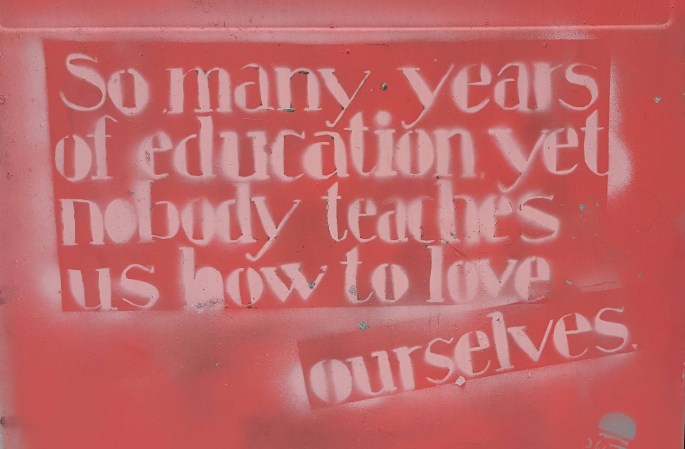 So many years
of education yet
nobody teaches
us how to love
ourselves.